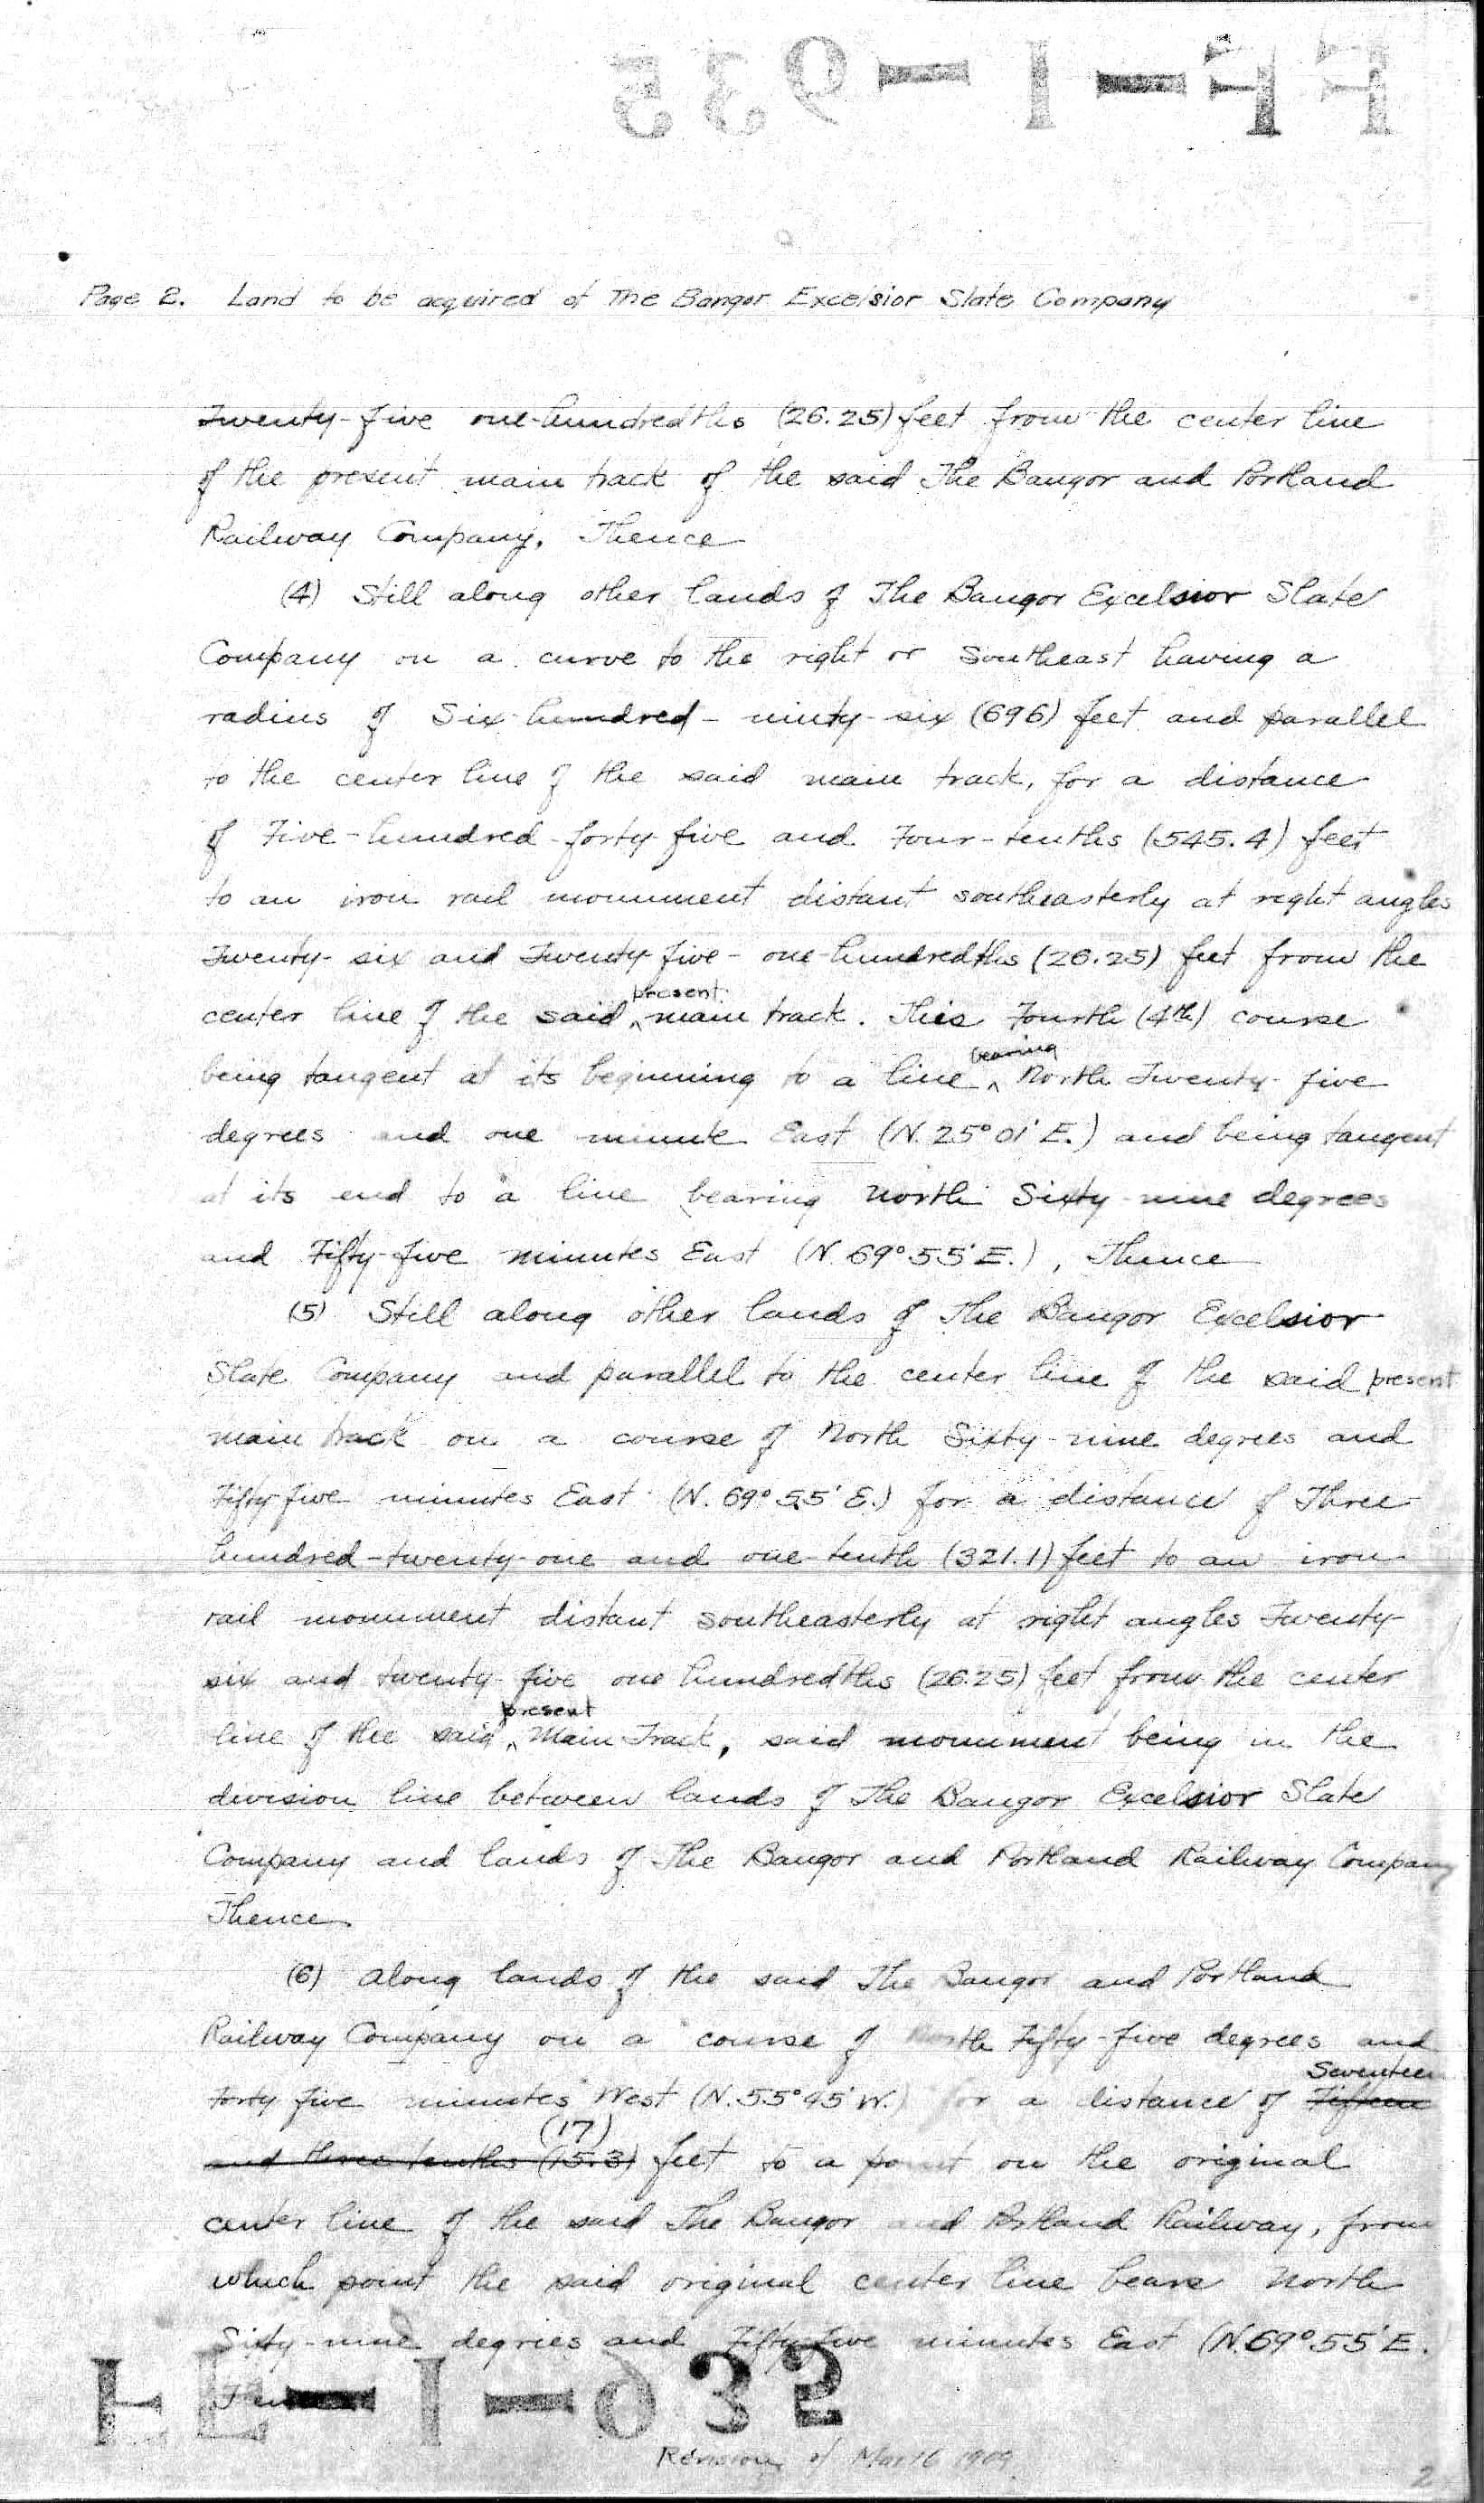 Page 2. Land to be acquired of The Bangor Excelsior Slate Company
Twenty-five one-hundredths (26.25) feet from the center line
of the present main track of the said The Bangor and Portland
Railway Company. Thence
(4) Still along other lands of The Bangor Excelsior Slate
Company on a curve to the right or Southeast having a
radius of Six-hundred-ninty-six (696) feet and parallel
to the center line of the said main track, for a distance
of Five-hundred-forty five and Four-tenths (545.4) feet
to an iron rail monument distant southeasterly at right angles
Twenty-six and Twenty five-one-hundredths (26.25) feet from the
present
center line of the said ^ main track. This Fourth (4th) course
bearing
being tangent at its beginning to a line ^ North Twenty-five
degrees and one minute East (N. 25° 01' E.) and being tangent
at its end to a line bearing North Sixty-nine degrees
and Fifty-five minutes East (N. 69° 55' E.), Thence
(5) Still along other lands of The Bangor Excelsior
Slate Company and parallel to the center line of the said present
main track on a course of North Sixty-nine degrees and
Fifty five minutes East (N. 69° 55' E.) for a distance of Three
hundred-twenty-one and one-tenth (321.1) feet to an iron
rail monument distant southeasterly at right angles Twenty-
six and twenty-five one hundredths (26.25) feet from the center
present
line of the said ^ Main Track, said monument being in the
division line between lands of The Bangor Excelsior Slate
Company and lands of The Bangor and Portland Railway Company
Thence
(6) Along lands of the said The Bangor and Portland
Railway Company on a course of North Fifty-five degrees and
Seventeen
forty five minutes West (N. 55° 45' W.) for a distance of Fifteen
(17)
and three tenths (15.3) feet to a point on the original
center line of the said The Bangor and Portland Railway, from
which point the said original center line bears North
Sixty-nine degrees and Fifty five minutes East (N. 69° 55' E.
Revision of Mar 16 1909
2